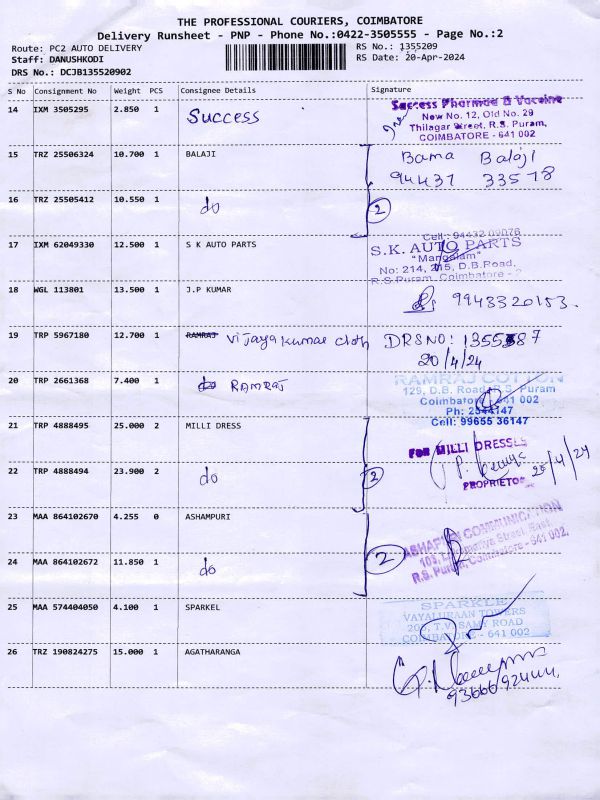 THE PROFESSIONAL COURIERS, COIMBATORE
Delivery Runsheet - PNP - Phone No.:0422-3505555 - Page No.:2
Route: PC2 AUTO DELIVERY RS No.: 1355209
Staff: DANUSHKODI RS Date: 20-Apr-2024
DRS No.: DCJB135520902
S No Consignment No Weight PCS Consignee Details Signature
14 IXM 3505295 2.850 1 Success
Success Pharmae & Vaccine
New No. 12, Old No. 29
Thilagar Street, R.S. Puram,
COIMBATORE - 641 002
15 TRZ 25506324 10.700 1 BALAJI Bama Balaji
94437 33578
16 TRZ 25505412 10.550 1 do 2
17 IXM 62049330 12.500 1 S K AUTO PARTS
Cell: 94432 09076
S.K. AUTO PARTS
"Mangalam"
No: 214, 215, D.B.Road,
R.S.Puram, Coimbatore - 2
18 WGL 113801 13.500 1 J.P KUMAR 9943320153.
19 TRP 5967180 12.700 1 RAMRAJ Vijaya kumar cloth DRSNO: 1355587
20/4/24
20 TRP 2661368 7.400 1 do RAMRAJ
RAMRAJ COTTON
129, D.B. Road, R.S. Puram
Coimbatore - 641 002
Ph: 2544147
Cell: 99655 36147
21 TRP 4888495 25.000 2 MILLI DRESS
FOR MILLI DRESSES
25/4/24
PROPRIETOR
22 TRP 4888494 23.900 2 do 2
23 MAA 864102670 4.255 0 ASHAMPURI
COMMUNICATION
Street, East
R.S. Puram, Coimbatore - 641 002.
24 MAA 864102672 11.850 1 do 2
25 MAA 574404050 4.100 1 SPARKEL
SPARKLE
VAYALURAAN TOWERS
205, T.V. SAMY ROAD
COIMBATORE - 641 002
26 TRZ 190824275 15.000 1 AGATHARANGA